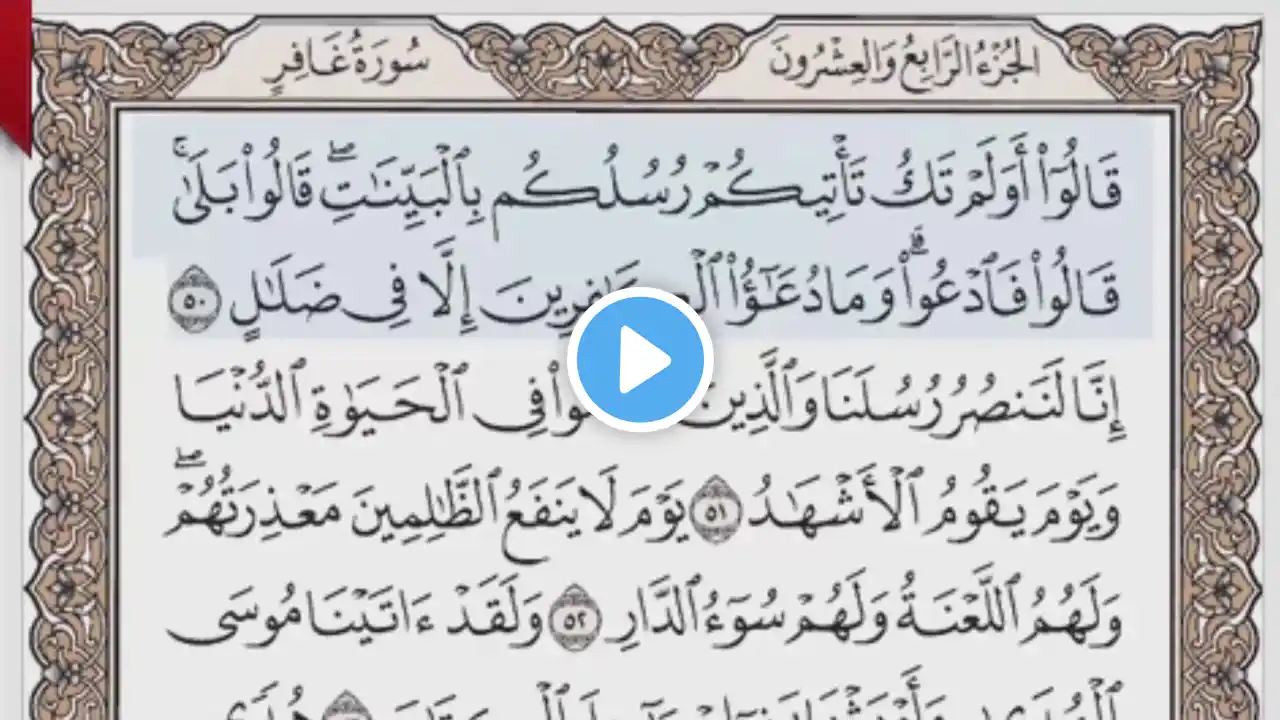 الجُزْءُ الرَّابِعُ وَالعِشْرُونَ
سُورَةُ غَافِرٍ
قَالُوٓاْ أَوَلَمْ تَكُ تَأْتِيكُمْ رُسُلُكُم بِٱلْبَيِّنَٰتِۖ قَالُواْ بَلَىٰۚ
قَالُواْ فَٱدْعُواْۗ وَمَا دُعَٰٓؤُاْ ٱلْكَٰفِرِينَ إِلَّا فِى ضَلَٰلٍ ٥٠
إِنَّا لَنَنصُرُ رُسُلَنَا وَٱلَّذِينَ فِى ٱلْحَيَوٰةِ ٱلدُّنْيَا
وَيَوْمَ يَقُومُ ٱلْأَشْهَٰدُ ٥١ يَوْمَ لَا يَنفَعُ ٱلظَّٰلِمِينَ مَعْذِرَتُهُمْۖ
وَلَهُمُ ٱللَّعْنَةُ وَلَهُمْ سُوٓءُ ٱلدَّارِ ٥٢ وَلَقَدْ ءَاتَيْنَا مُوسَى